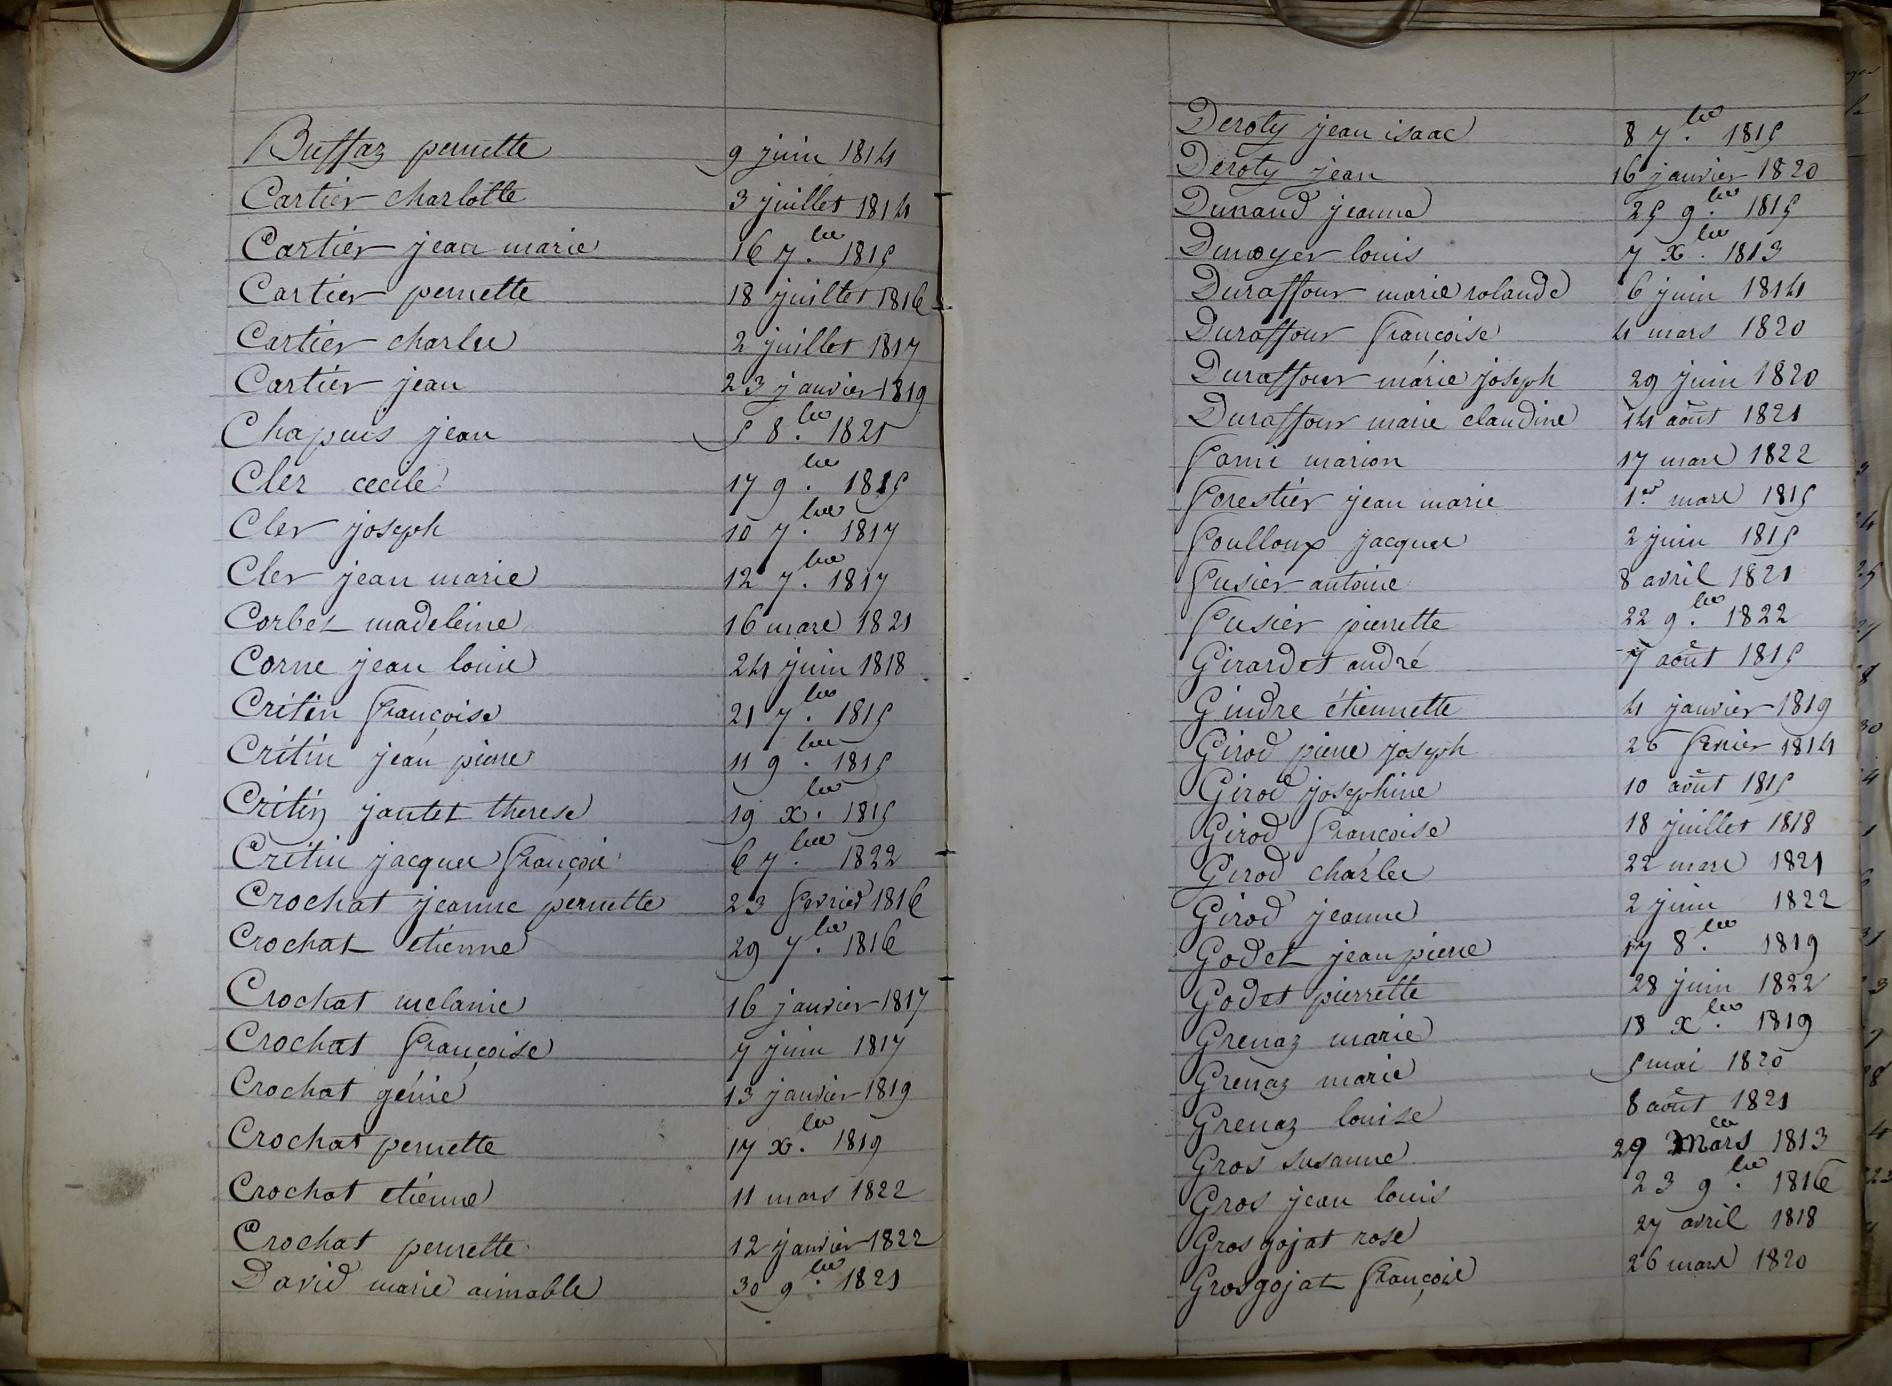 Buffaz pernette 9 juin 1814
Cartier charlotte 3 juillet 1814
Cartier jean marie 16 7.bre 1815
Cartier pernette 18 juillet 1816
Cartier charles 2 juillet 1817
Cartier jean 23 janvier 1819
Chapuis jean 5 8.bre 1821
Cler cecile 17 9.bre 1815
Cler joseph 10 7.bre 1817
Cler jean marie 12 7.bre 1817
Corbet madeleine 16 mars 1821
Corne jean louis 24 juin 1818
Critin françoise 21 7.bre 1815
Critin jean pierre 11 9.bre 1815
Critin jantet therese 19 x.bre 1815
Critin jacques françois 6 7.bre 1822
Crochat jeanne pernette 23 fevrier 1816
Crochat etienne 29 7.bre 1816
Crochat melanie 16 janvier 1817
Crochat françoise 7 juin 1817
Crochat génie 13 janvier 1819
Crochat pernette 17 x.bre 1819
Crochat etienne 11 mars 1822
Crochat pernette 12 janvier 1822
David marie aimable 30 9.bre 1821
Deroty jean isaac 8 7.bre 1815
Deroty jean 16 janvier 1820
Dunand jeanne 25 9.bre 1815
Dunoyer louis 7 x.bre 1813
Duraffour marie rolande 6 juin 1814
Duraffour françoise 4 mars 1820
Duraffour marie joseph 29 juin 1820
Duraffour marie claudine 14 août 1821
Fami marion 17 mars 1822
Forestier jean marie 1er mars 1815
Foulloux jacques 2 juin 1815
Fusier antoine 8 avril 1821
Fusier pierrette 22 9.bre 1822
Girardet andré 7 août 1815
Gindre étiennette 4 janvier 1819
Girod pierre joseph 26 fevrier 1814
Girod josephine 10 août 1815
Girod françoise 18 juillet 1818
Girod charles 22 mars 1821
Girod jeanne 2 juin 1822
Godet jean pierre 17 8.bre 1819
Godet pierrette 28 juin 1822
Grenaz marie 18 x.bre 1819
Grenaz marie 5 mai 1820
Grenaz louise 8 août 1821
Gros susanne 29 mars 1813
Gros jean louis 23 9.bre 1816
Gros gojat rose 27 avril 1818
Grosgojat françois 26 mars 1820